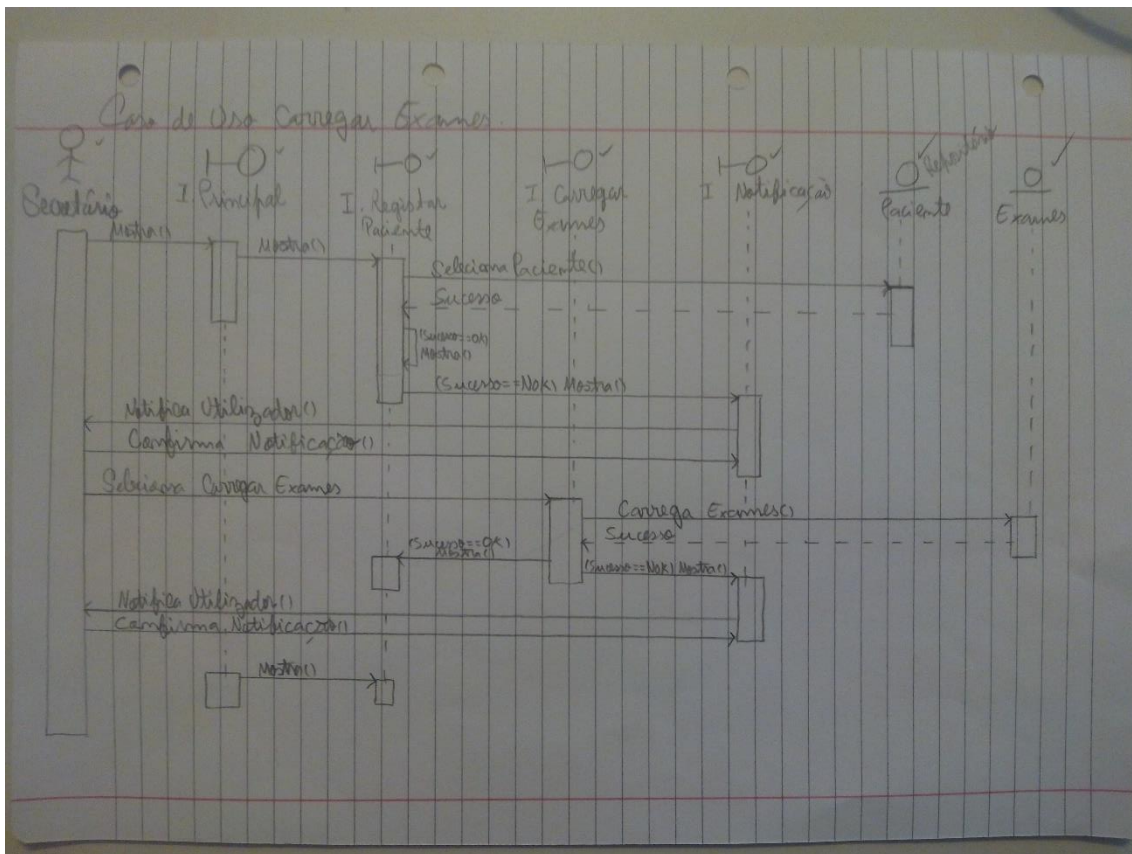 Caso de Uso Carregar Exames.
Secretário
I. Principal
I. Registar
Paciente
I Carregar
Exames
I Notificação
Repositório
Paciente
Exames
Mostra()
Mostra()
Seleciona Paciente()
Sucesso
(Sucesso==OK)
Mostra()
(Sucesso==NoK) Mostra()
Notifica Utilizador()
Confirma Notificação()
Seleciona Carregar Exames
Carrega Exames()
Sucesso
(Sucesso==OK)
Mostra()
(Sucesso==NoK) Mostra()
Notifica Utilizador()
Confirma Notificação()
Mostra()